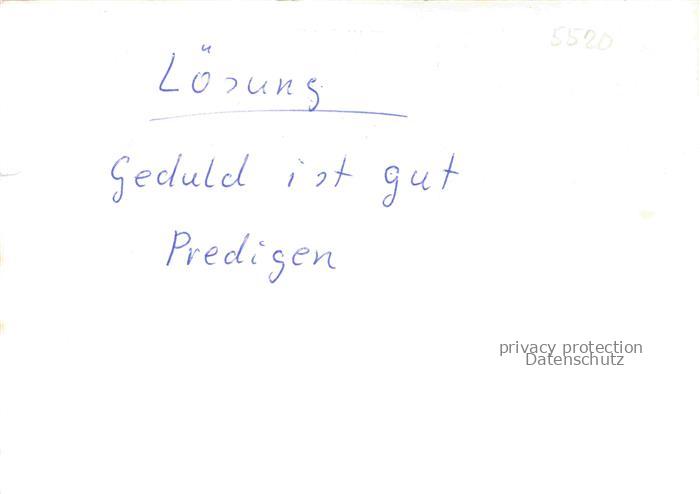 5520
Lösung
Geduld ist gut
Predigen
privacy protection
Datenschutz